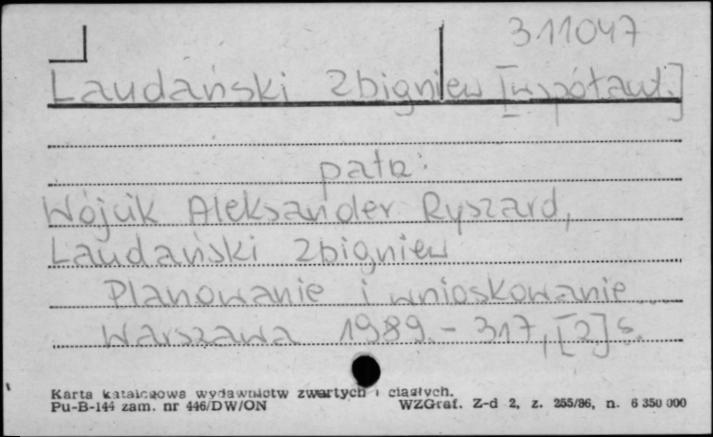 311047
Laudański Zbigniew [współaut.]
patrz:
Wójcik Aleksander Ryszard,
Laudański Zbigniew
Planowanie i wnioskowanie ...
Warszawa 1989. - 317, [2] s.
Karta katalogowa wydawnictw zwartych i ciągłych.
Pu-B-144 zam. nr 446/DW/ON WZGraf. Z-d 2, z. 255/86, n. 6 350 000